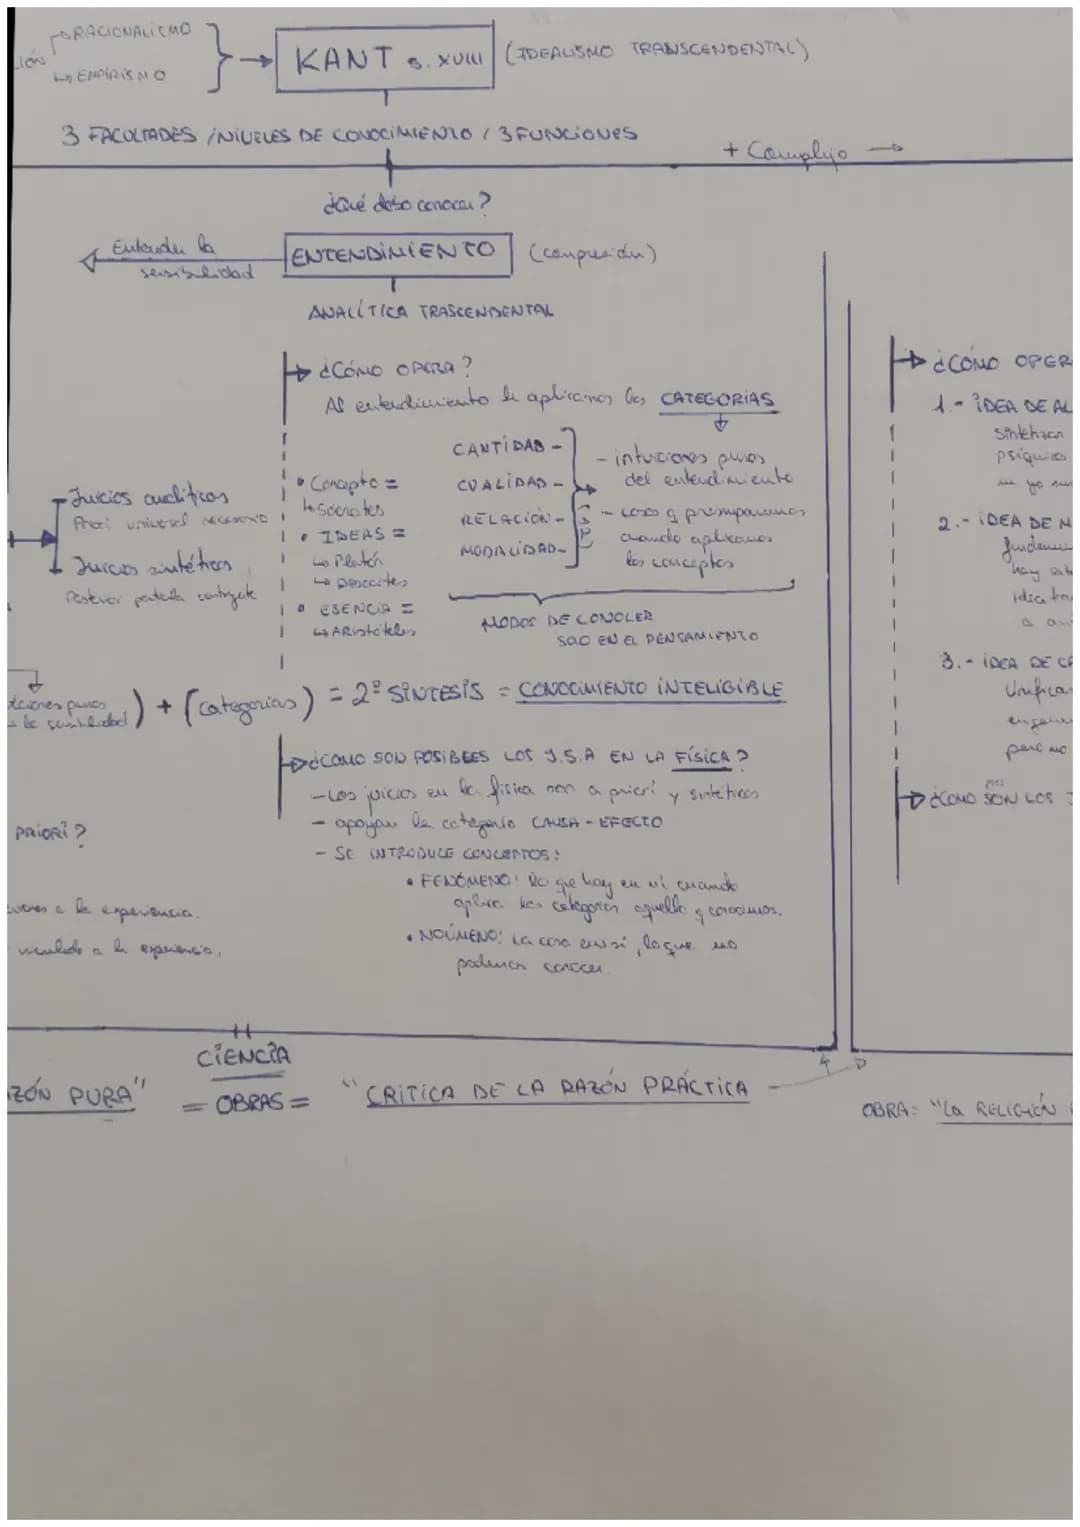 RACIONALISMO
EMPIRISMO
KANT s. XVIII
(IDEALISMO TRANSCENDENTAL)
3 FACULTADES / NIVELES DE CONOCIMIENTO / 3 FUNCIONES
+ Complejo →
¿Qué debo conocer?
Entender la
sensibilidad
ENTENDIMIENTO
(comprensión)
ANALÍTICA TRASCENDENTAL
¿CÓMO OPERA?
Al entendimiento le aplicamos las CATEGORÍAS
CANTIDAD -
CUALIDAD -
RELACIÓN -
MODALIDAD -
- intuiciones puras
del entendimiento
- cosas q
cuando aplicamos
los conceptos
• Concepto =
↳ Sócrates
• IDEAS =
↳ Platón
↳ Descartes
• ESENCIA =
↳ Aristóteles
MODOS DE CONOCER
SOLO EN EL PENSAMIENTO
Juicios analíticos
universal necesario
Juicios sintéticos
contingente
puras
la sensibilidad) + (categorías) = 2ª SÍNTESIS = CONOCIMIENTO INTELIGIBLE
¿COMO SON POSIBLES LOS J.S.A EN LA FÍSICA?
- Los juicios en la física son a priori y sintéticos
- apoyan la categoría CAUSA - EFECTO
- SE INTRODUCE CONCEPTOS:
• FENÓMENO: Lo que hay en mí cuando
aplico las categorías aquello q conocemos.
• NOÚMENO: La cosa en sí, lo que no
podemos conocer.
PRIORI?
a la experiencia.
vinculado a la experiencia.
CIENCIA
RAZÓN PURA"
= OBRAS =
"CRÍTICA DE LA RAZÓN PRÁCTICA
¿CÓMO OPER
1.- IDEA DE AL
Sintetizan
psíquicos
yo
2.- IDEA DE M
hay
idea
a
3.- IDEA DE
Unifica
pero no
¿COMO SON LOS J
OBRA: "La RELIGIÓN